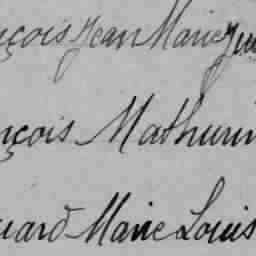 nçois Jean Marie
nçois Mathurin
uard Marie Louis